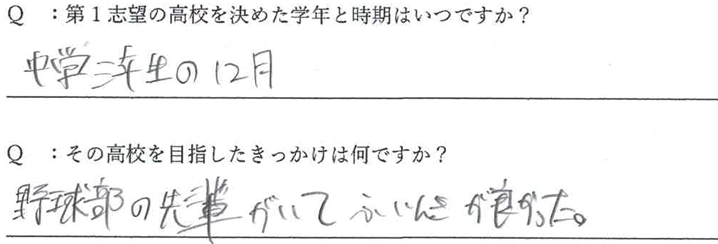 Q ：第１志望の高校を決めた学年と時期はいつですか？
中学三年生の12月
Q ：その高校を目指したきっかけは何ですか？
野球部の先輩がいてふいんきが良かった。